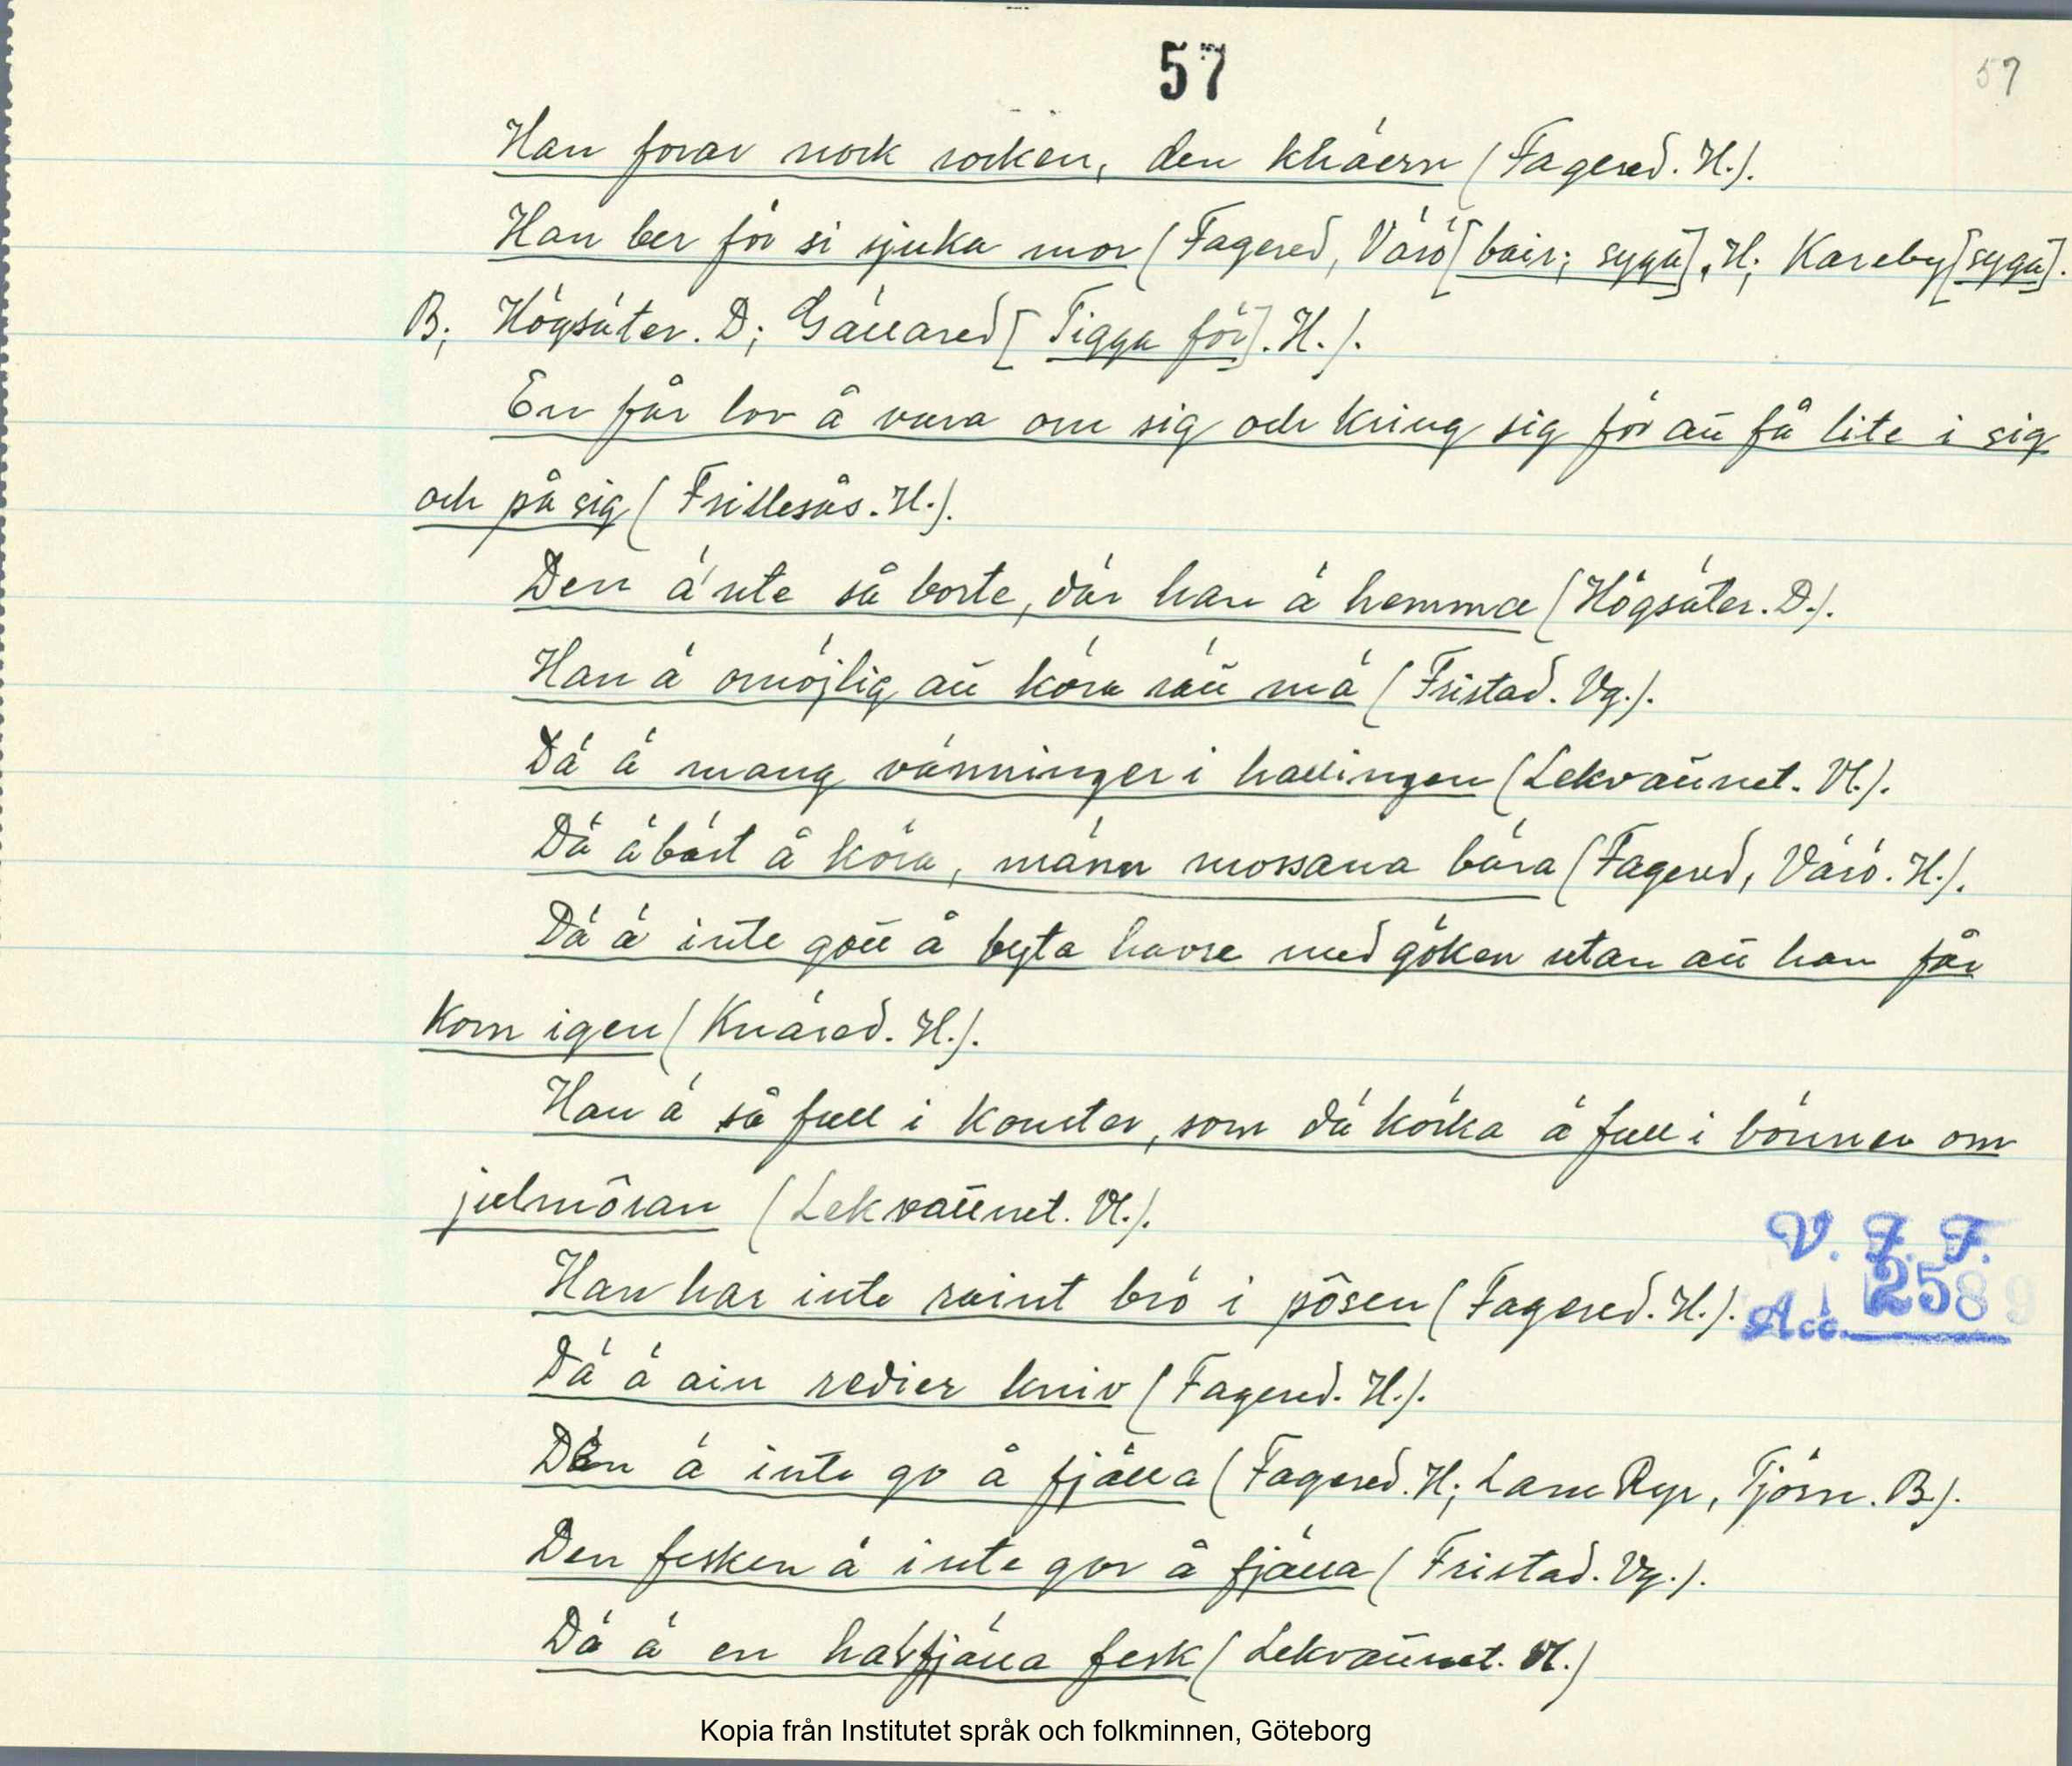 57
57
Han forar nock rocken, den kläern (Fagered. H.).
Han ber för si sjuka mor (Fagered, Värö [bair; syga]. H; Kareby [syga].
B; Högsäter. D; Gällared [Tigga för]. H.).
En får lov å vara om sig och kring sig för att få lite i sig
och på sig (Frillesås. H.).
Den ä ute så borte, där han ä hemma (Högsäter. D.).
Han ä omöjlig att köra rätt mä (Fristad. Vg.).
Dä ä mang vänninger i hallingen (Lekvattnet. Vl.).
Dä ä bäst å köra, männ mossana bära (Fagered, Värö. H.).
Dä ä inte gott å byta havre med göken utan att han får
korn igen (Knäred. H.).
Han ä så full i konster, som dä körka ä full i bönner om
julmôran (Lekvattnet. Vl.).
Han har inte raint brö i pôsen (Fagered. H.).
V. F. F.
Acc. 2589
Dä ä ain redier kniv (Fagered. H.).
Den ä inte go å fjälla (Fagered. H; Lane Ryr, Tjörn. B.).
Den fesken ä inte gor å fjälla (Fristad. Vg.).
Dä ä en halvfjälla fesk (Lekvattnet. Vl.)
Kopia från Institutet språk och folkminnen, Göteborg